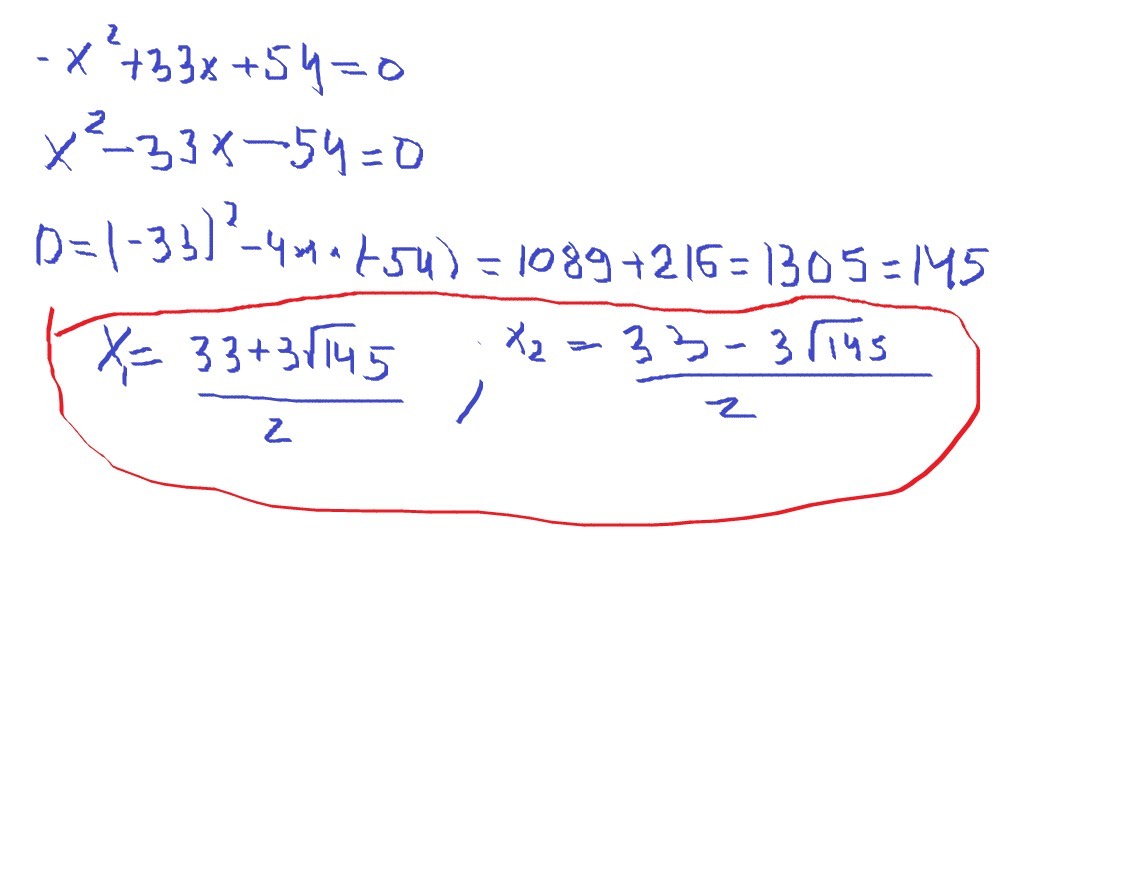 -x²+33x+54=0
x²-33x-54=0
D=(-33)²-4·1·(-54)=1089+216=1305=145
x₁=(33+3√145)/2 , x₂=(33-3√145)/2